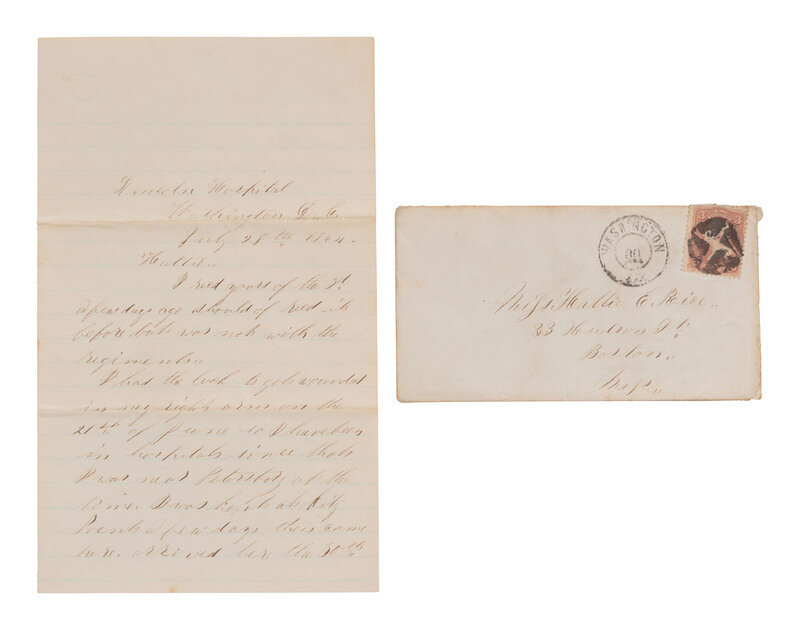 Lincoln Hospital
Washington D.C.
July 28th 1864.
Hattie.
I recd yours of the 3d
a few days ago should of recd it
before but was not with the
regiment.
I had the luck to get wounded
in my right arm on the
21st of June so I have been
in hospitals since that
I was near Petersburg at the
time. I was kept at City
Point a few days then came
here. arrived here the 30th
WASHINGTON
30
3
Miss Hattie E. Rice.
33 Hudson St.
Boston.
Mass.